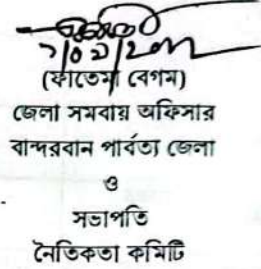 (ফাতেমা বেগম)
জেলা সমবায় অফিসার
বান্দরবান পার্বত্য জেলা
ও
সভাপতি
নৈতিকতা কমিটি